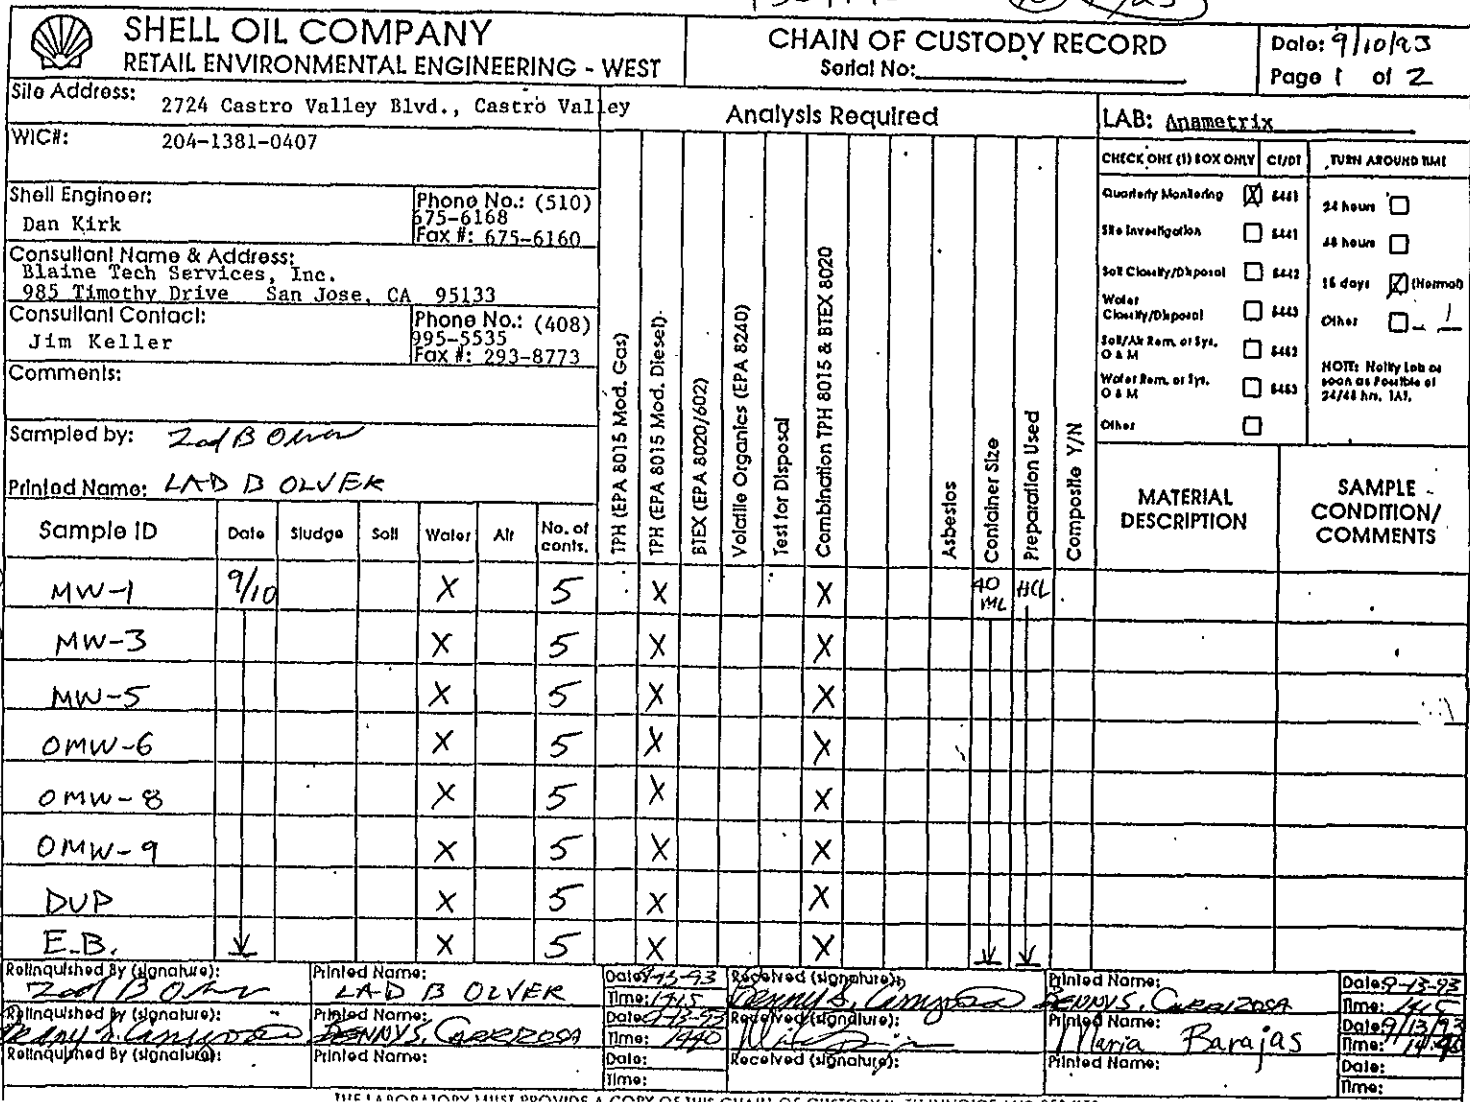 SHELL OIL COMPANY
RETAIL ENVIRONMENTAL ENGINEERING - WEST
CHAIN OF CUSTODY RECORD
Serial No:
Date: 9/10/93
Page 1 of 2
Site Address: 2724 Castro Valley Blvd., Castro Valley
WIC#: 204-1381-0407
Shell Engineer: Dan Kirk
Phone No.: (510) 675-6168
Fax #: 675-6160
Consultant Name & Address:
Blaine Tech Services, Inc.
985 Timothy Drive San Jose, CA 95133
Consultant Contact: Jim Keller
Phone No.: (408) 995-5535
Fax #: 293-8773
Comments:
Sampled by:
Printed Name: LAD B OLVER
Analysis Required
LAB: Anametrix
CHECK ONE (1) BOX ONLY CT/DT TURN AROUND TIME
Quarterly Monitoring X 6441
Site Investigation 6441
Soil Classify/Disposal 6442
Water Classify/Disposal 6443
Soil/Air Rem. or Sys. O & M 6452
Water Rem. or Sys. O & M 6453
Other
24 hours
48 hours
15 days X (Normal)
Other
NOTE: Notify Lab as soon as Possible of 24/48 hrs. TAT.
Sample ID Date Sludge Soil Water Air No. of conts.
TPH (EPA 8015 Mod. Gas)
TPH (EPA 8015 Mod. Diesel)
BTEX (EPA 8020/602)
Volatile Organics (EPA 8240)
Test for Disposal
Combination TPH 8015 & BTEX 8020
Asbestos
Container Size
Preparation Used
Composite Y/N
MATERIAL DESCRIPTION
SAMPLE CONDITION/ COMMENTS
MW-1 9/10 X 5 X X 40 ML HCL
MW-3 X 5 X X
MW-5 X 5 X X
OMW-6 X 5 X X
OMW-8 X 5 X X
OMW-9 X 5 X X
DUP X 5 X X
E.B. X 5 X X
Relinquished By (signature): Printed Name: LAD B OLVER Date: 9-13-93 Time: 1415
Received (signature): Printed Name: BENNY S. CARRIZOSA Date: 9-13-93 Time: 1415
Relinquished by (signature): Printed Name: BENNY S. CARRIZOSA Date: 9-13-93 Time: 1440
Received (signature): Printed Name: Maria Barajas Date: 9/13/93 Time: 14:40
Relinquished By (signature): Printed Name: Date: Time:
Received (signature): Printed Name: Date: Time:
THE LABORATORY MUST PROVIDE A COPY OF THIS CHAIN OF CUSTODY